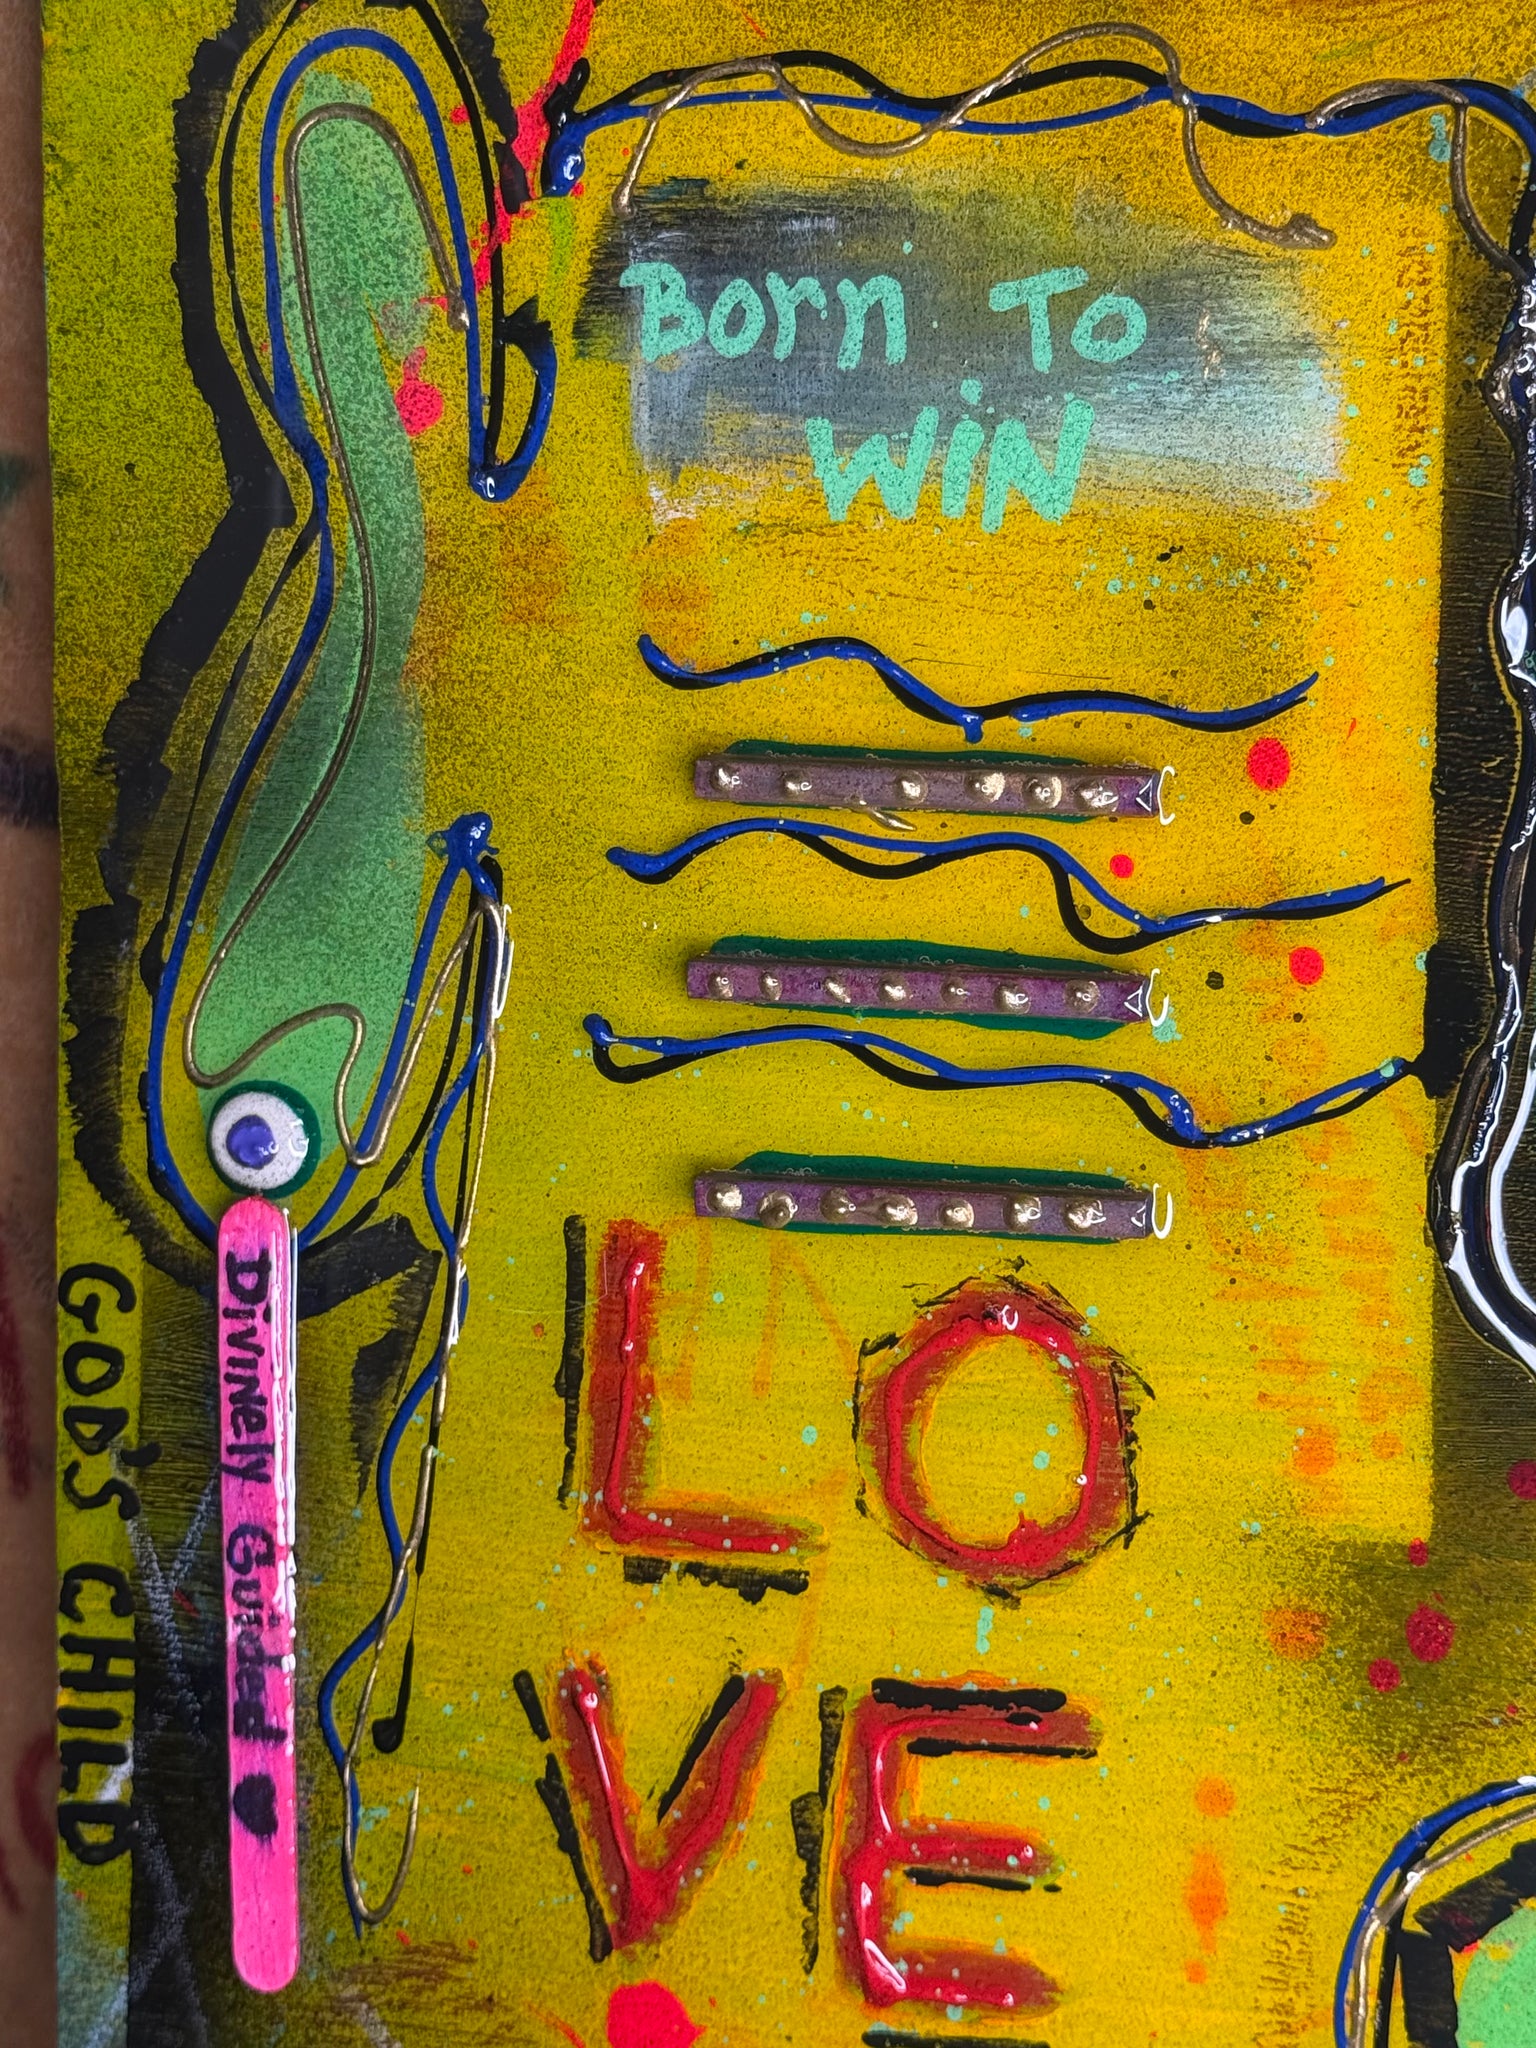 Born To
WiN
LO
VE
DiviNely Guided
GOD'S CHILD